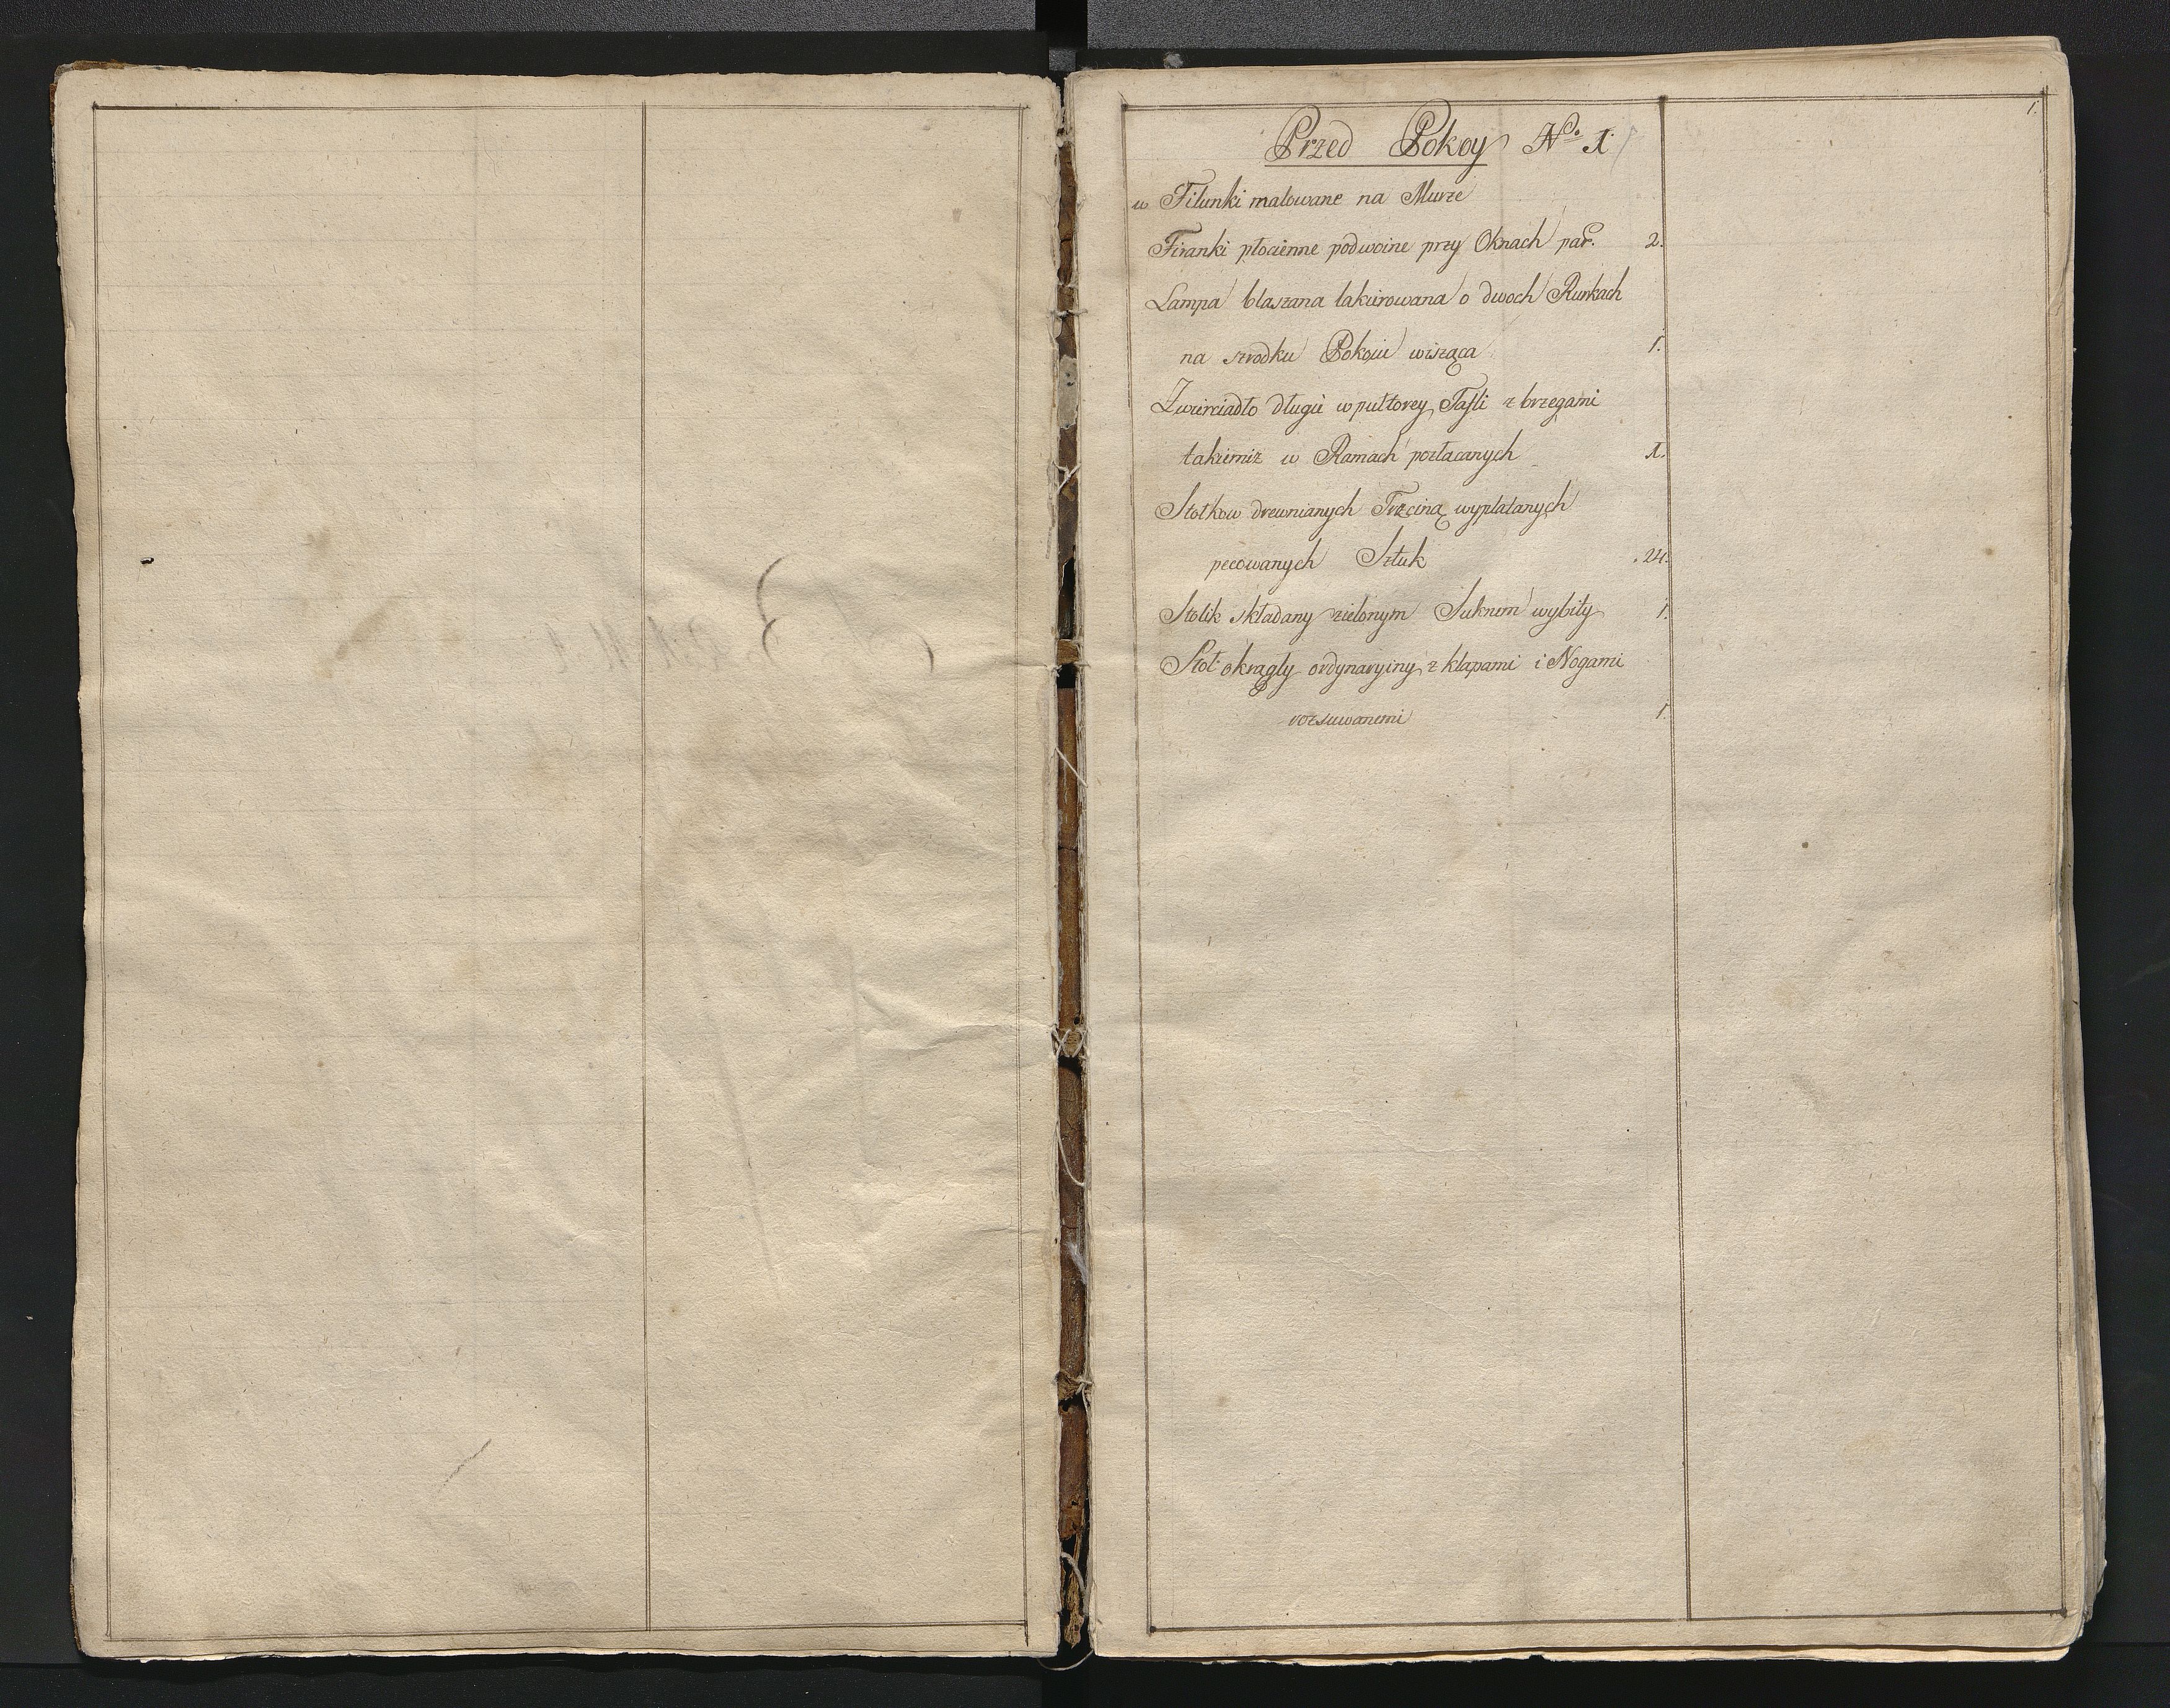 1.
Przed Pokoy No. 1
w Filunki malowane na Murze
Firanki płocienne podwoine przy Oknach par. 2.
Lampa blaszana lakierowana o dwoch Rurkach
na szrodku Pokoiu wisząca 1.
Zwierciadło długie w pułtorey Tafli z brzegami
takiemiz w Ramach pozłacanych 1.
Stołkow drewnianych Trzciną wyplatanych
pecowanych Sztuk 24.
Stolik składany zielonym Suknem wybity 1.
Stoł okrągły ordynaryiny z klapami i Nogami
rozsuwanemi 1.